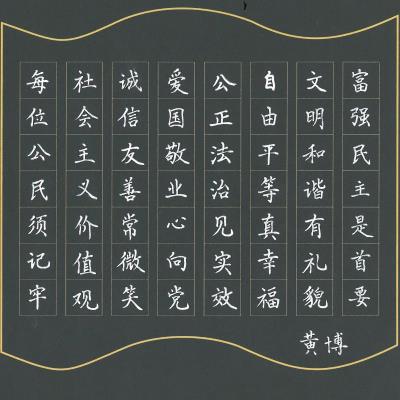 富强民主是首要
文明和谐有礼貌
自由平等真幸福
公正法治见实效
爱国敬业心向党
诚信友善常微笑
社会主义价值观
每位公民须记牢
黄博